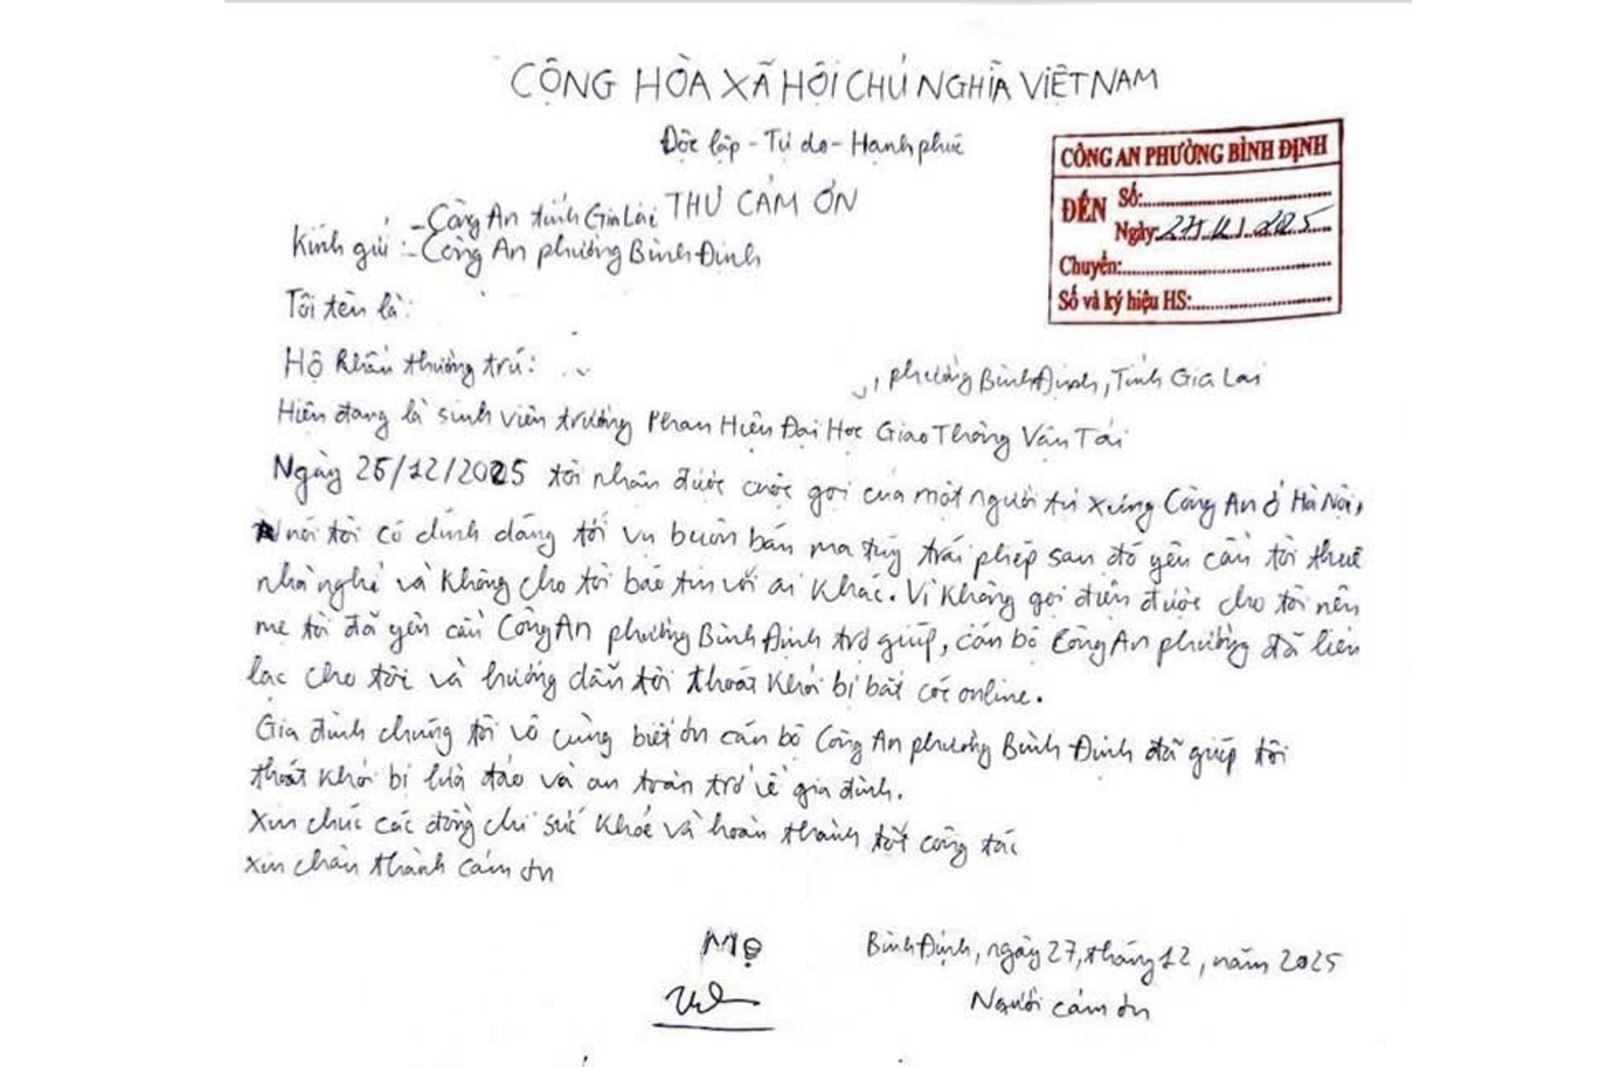 CỘNG HÒA XÃ HỘI CHỦ NGHĨA VIỆT NAM
Độc lập - Tự do - Hạnh phúc
THƯ CẢM ƠN
CÔNG AN PHƯỜNG BÌNH ĐỊNH
ĐẾN Số:
Ngày: 27/12/2025
Chuyển:
Số và ký hiệu HS:
- Công An tỉnh Gia Lai
Kính gửi: - Công An phường Bình Định
Tôi tên là:
Hộ khẩu thường trú: , phường Bình Định, Tỉnh Gia Lai
Hiện đang là sinh viên trường Phan Hiệu Đại Học Giao Thông Vận Tải
Ngày 25/12/2025 tôi nhận được cuộc gọi của một người tự xưng Công An ở Hà Nội,
nói tôi có dính dáng tới vụ buôn bán ma túy trái phép sau đó yêu cầu tôi thuê
nhà nghỉ và không cho tôi báo tin với ai khác. Vì không gọi điện được cho tôi nên
mẹ tôi đã yêu cầu Công An phường Bình Định trợ giúp, cán bộ Công An phường đã liên
lạc cho tôi và hướng dẫn tôi thoát khỏi bị bắt cóc online.
Gia đình chúng tôi vô cùng biết ơn cán bộ Công An phường Bình Định đã giúp tôi
thoát khỏi bị lừa đảo và an toàn trở về gia đình.
Xin chúc các đồng chí sức khỏe và hoàn thành tốt công tác
Xin chân thành cảm ơn
Mẹ
Bình Định, ngày 27, tháng 12, năm 2025
Người cảm ơn